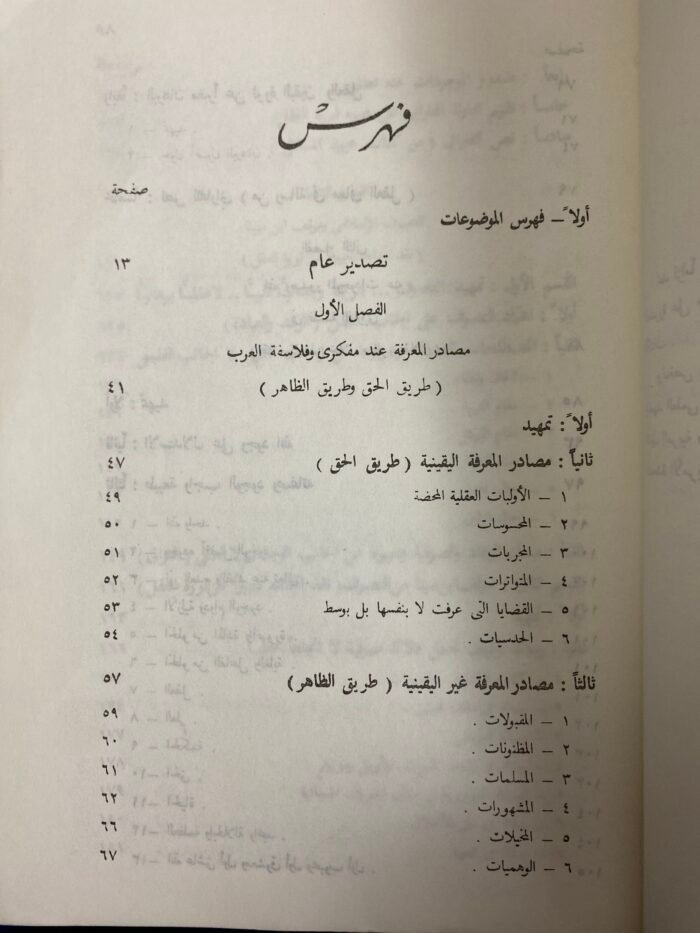 فهرس
صفحة
أولاً – فهرس الموضوعات
تصدير عام ١٣
الفصل الأول
مصادر المعرفة عند مفكرى وفلاسفة العرب
( طريق الحق وطريق الظاهر ) ٤١
أولاً : تمهيد
ثانياً : مصادر المعرفة اليقينية ( طريق الحق ) ٤٧
١ – الأوليات العقلية المحضة ٤٩
٢ – المحسوسات ٥٠
٣ – المجربات ٥١
٤ – المتواترات ٥٢
٥ – القضايا التى عرفت لا بنفسها بل بوسط ٥٣
٦ – الحدسيات . ٥٤
ثالثاً : مصادر المعرفة غير اليقينية ( طريق الظاهر ) ٥٧
١ – المقبولات . ٥٩
٢ – المظنونات . ٦٠
٣ – المسلمات . ٦١
٤ – المشهورات . ٦٢
٥ – المخيلات . ٦٦
٦ – الوهميات . ٦٧